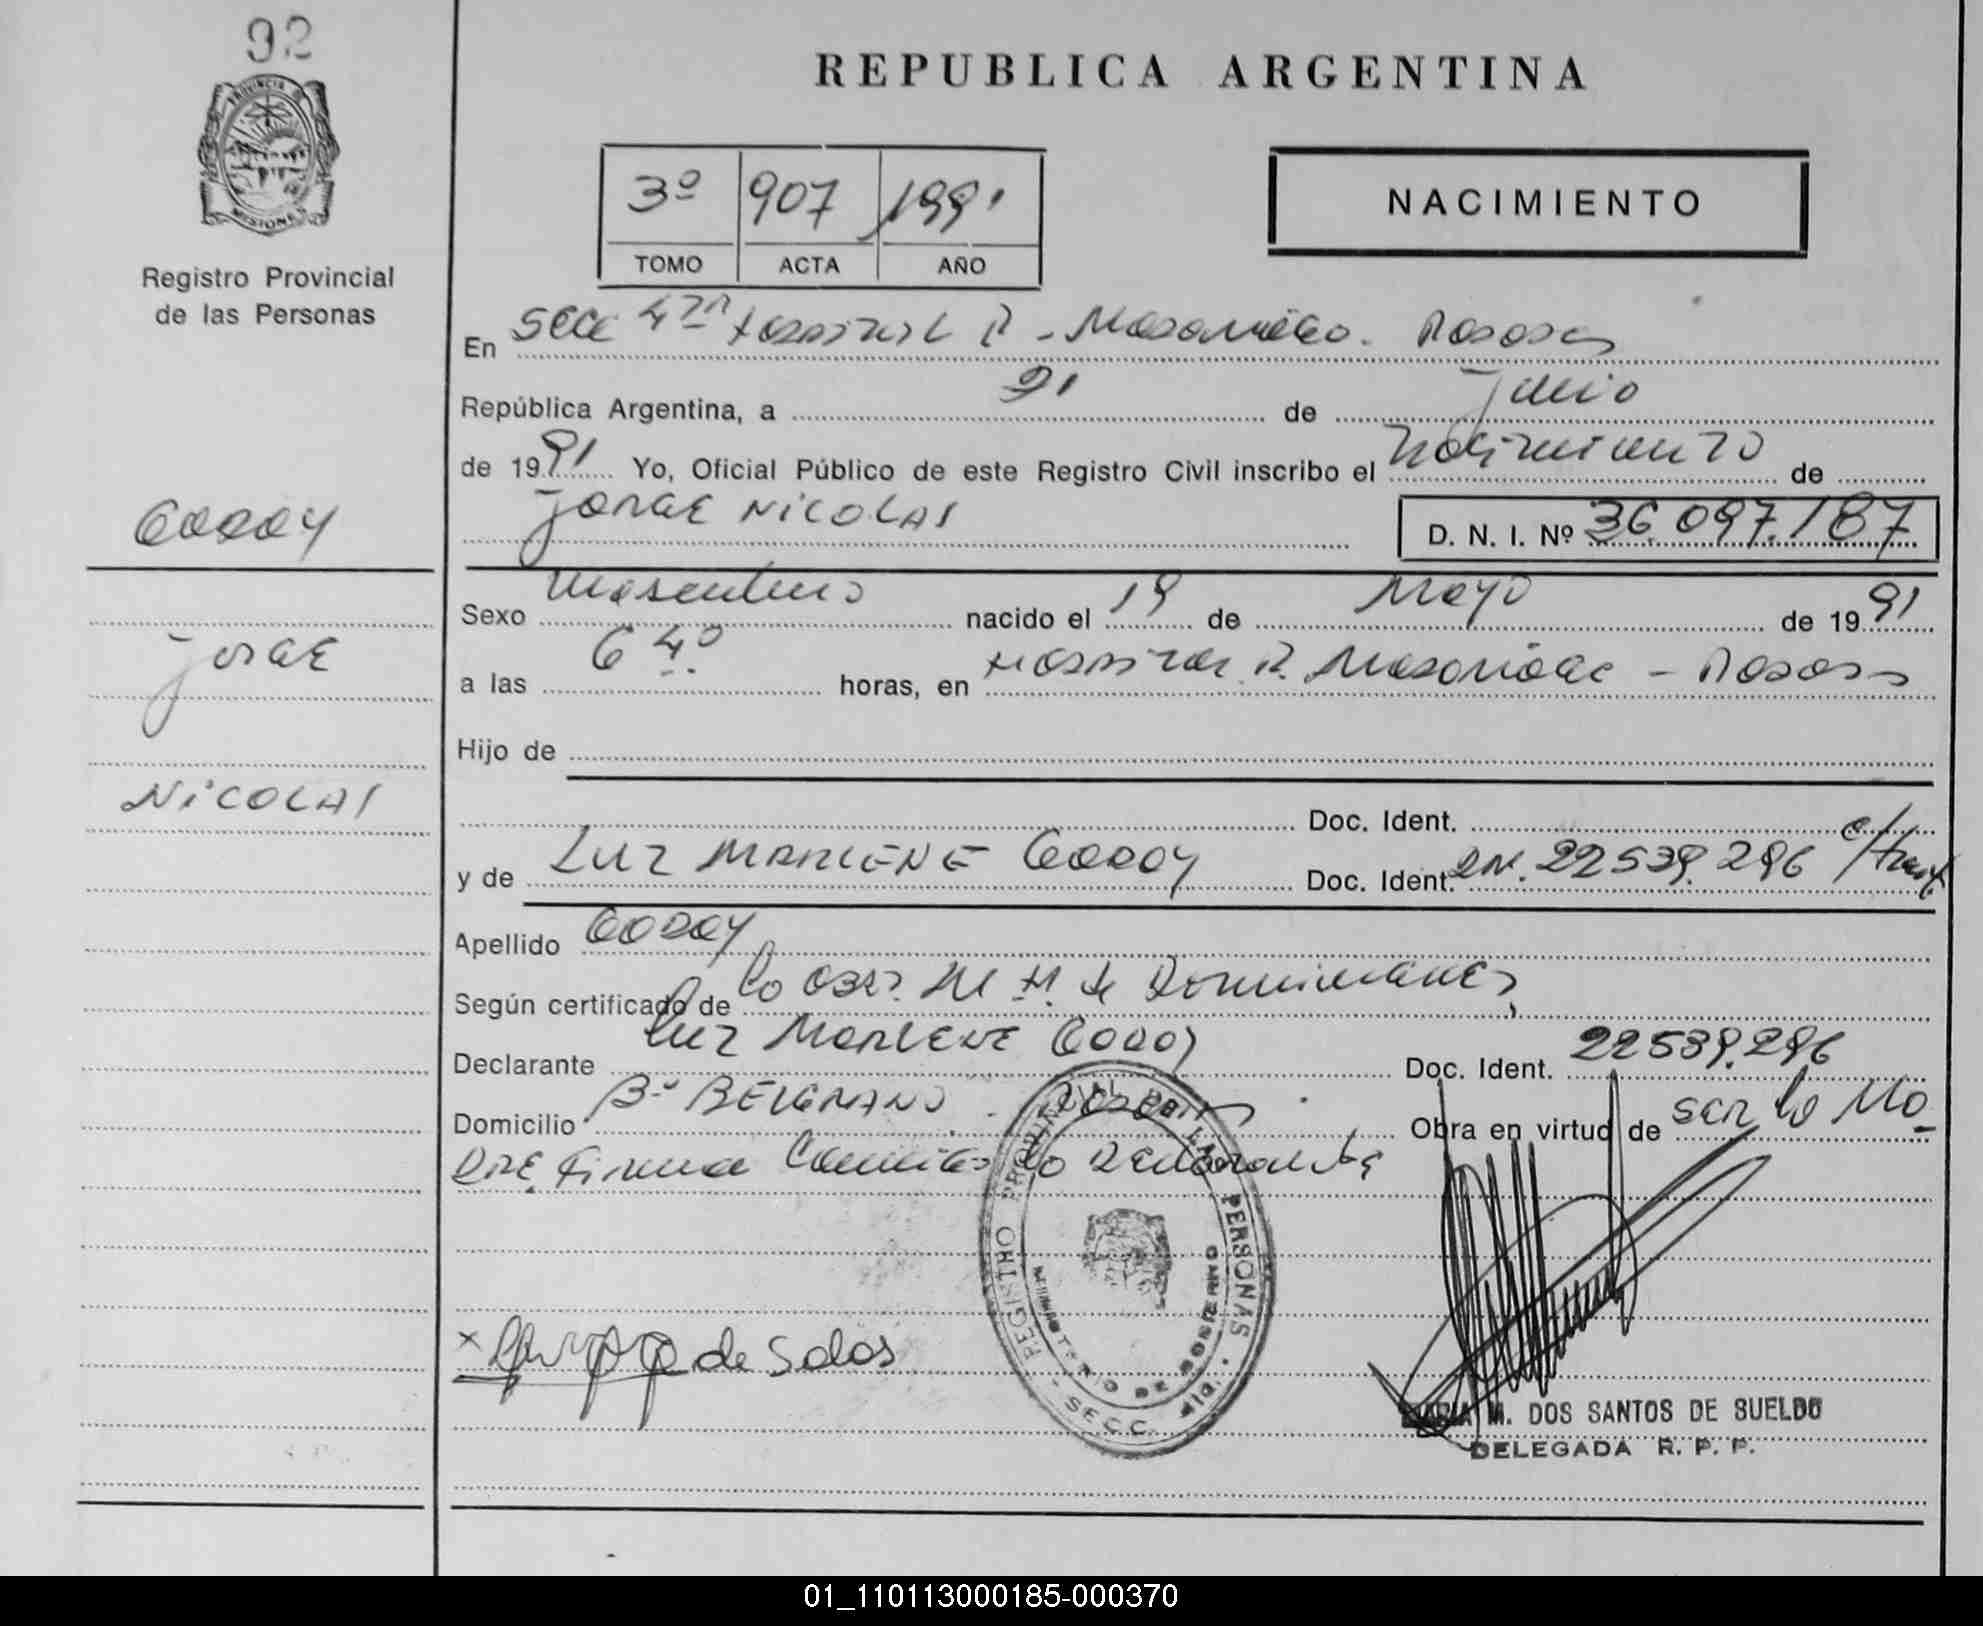 92
REPUBLICA ARGENTINA
PROVINCIA DE
MISIONES
Registro Provincial
de las Personas
3º 907 1991
TOMO ACTA AÑO
NACIMIENTO
En Secc 4ta Hospital R. Madariaga. Posadas
República Argentina, a 21 de Junio
de 1991 Yo, Oficial Público de este Registro Civil inscribo el Nacimiento de
JORGE NICOLAS
D. N. I. Nº 36.097.187
GODOY
JORGE
NICOLAS
Sexo Masculino nacido el 19 de Mayo de 1991
a las 6 40 horas, en Hospital R. Madariaga - Posadas
Hijo de
Doc. Ident.
y de LUZ MARLENE GODOY Doc. Ident. DNI. 22539.296
Apellido GODOY
Según certificado de la Obst. M. H. de
Declarante Luz MARLENE GODOY Doc. Ident. 22539.296
Domicilio Bº BELGRANO. Posadas Obra en virtud de ser la Ma-
DRE, Firma la Declarante
REGISTRO PROVINCIAL DE LAS PERSONAS
MINISTERIO DE GOBIERNO
SECC.
de Salas
MARIA M. DOS SANTOS DE SUELDO
DELEGADA R. P. P.
01_110113000185-000370